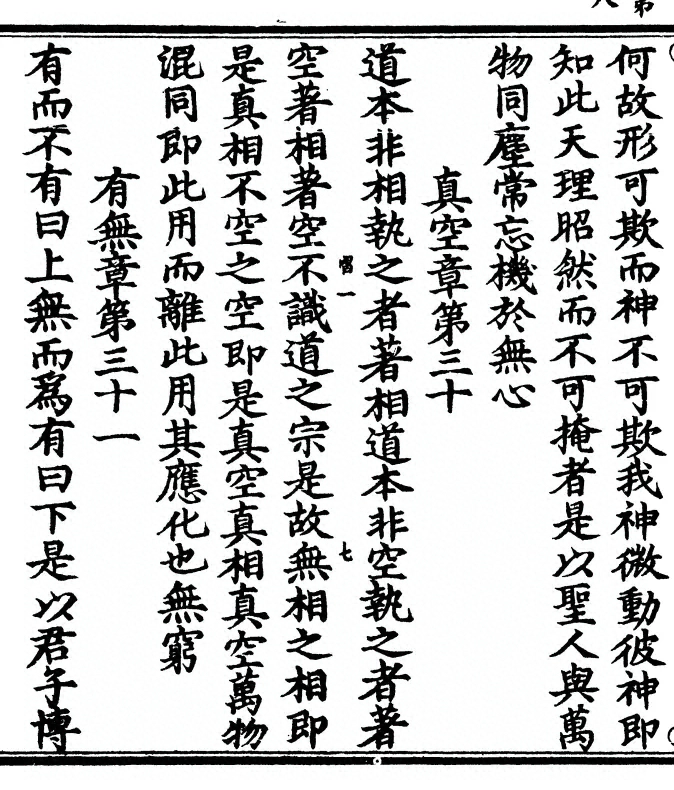 何故形可欺而神不可欺我神微動彼神即
知此天理昭然而不可掩者是以聖人與萬
物同塵常忘機於無心
真空章第三十
道本非相執之者著相道本非空執之者著
空著相著空不識道之宗是故無相之相即
是真相不空之空即是真空真相真空萬物
混同即此用而離此用其應化也無窮
有無章第三十一
有而不有曰上無而為有曰下是以君子博
七